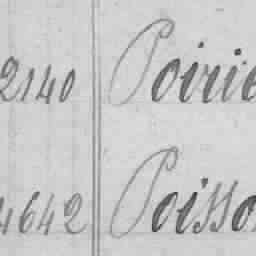 2140 Poirie
4642 Poisso